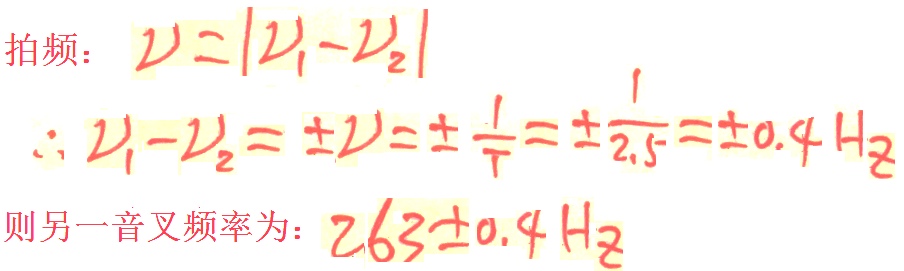 拍频：ν=|ν₁-ν₂|
∴ ν₁-ν₂=±ν=±1/T=±1/2.5=±0.4 Hz
则另一音叉频率为：263±0.4 Hz